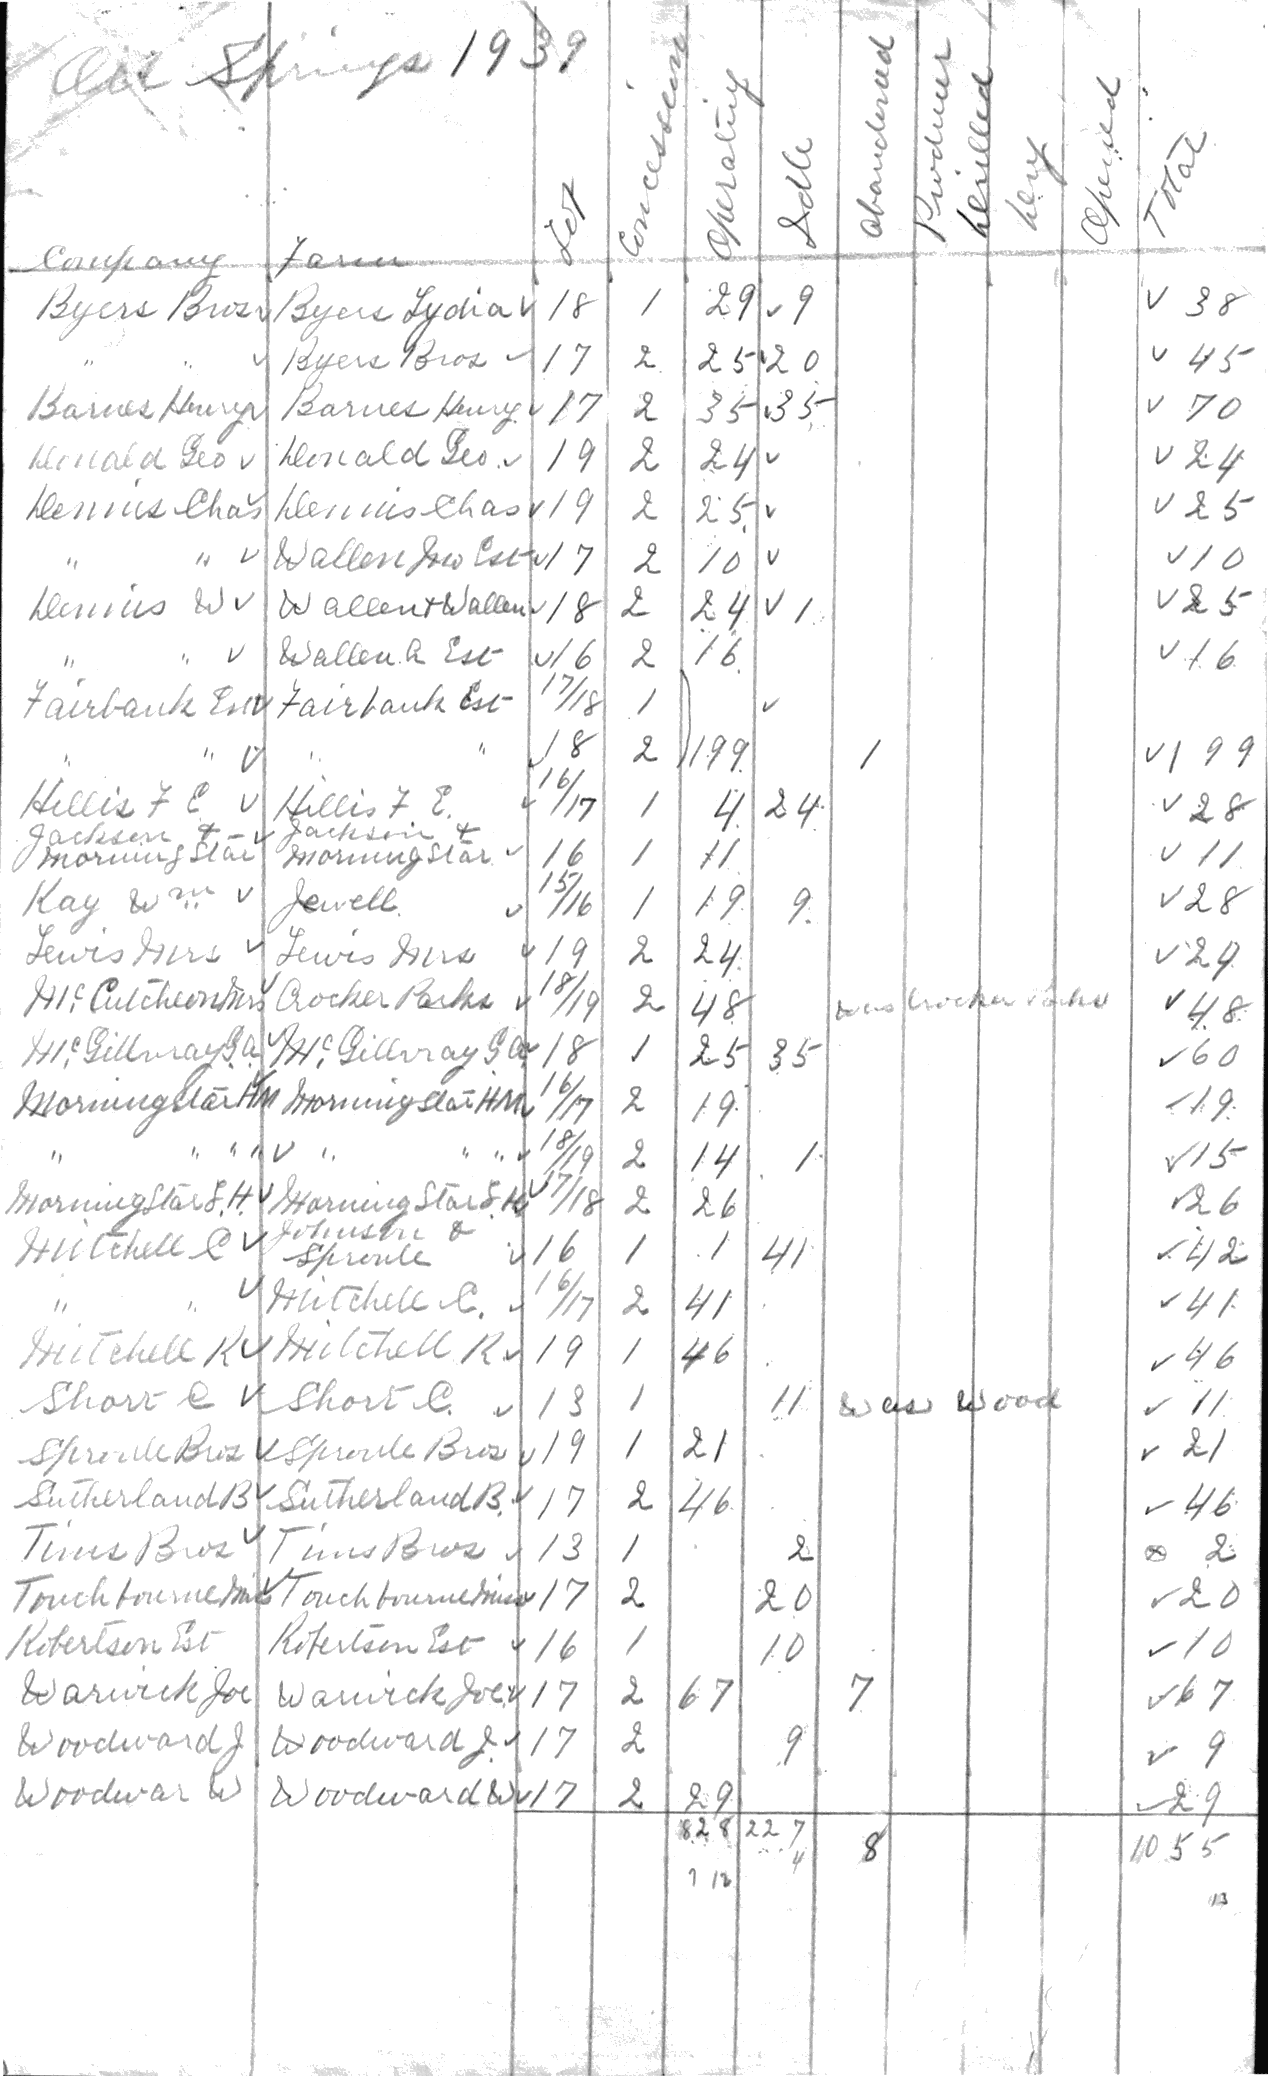 Oil Springs 1939
Company Farm Lot Concession Operating Idle Abandoned Producer Drilled Dry Opened Total
Byers Bros v Byers Lydia v 18 1 29 v 9 v 38
" " v Byers Bros v 17 2 25 v 20 v 45
Barnes Henry v Barnes Henry v 17 2 35 v 35 v 70
Donald Geo v Donald Geo. v 19 2 24 v v 24
Dennis Chas v Dennis Chas v 19 2 25 v v 25
" " v Wallen Jno Est v 17 2 10 v v 10
Dennis W v Wallen + Wallen v 18 2 24 v 1 v 25
" " v Wallen A Est v 16 2 16 v 16
Fairbank Est v Fairbank Est 17/18 1 v
" " v " " 18 2 199 1 v 199
Hillis F E v Hillis F. E. v 16/17 1 4 24 v 28
Jackson + v Jackson +
Morningstar Morningstar v 16 1 11 v 11
Kay Wm v Jewell v 15/16 1 19 9 v 28
Lewis Mrs v Lewis Mrs v 19 2 24 v 24
McCutcheon Mrs v Crocker Parks v 18/19 2 48 was Crocker Parks v 48
McGillvray G.A. v McGillvray G A v 18 1 25 35 v 60
Morningstar HM v Morningstar H.M. v 16/17 2 19 v 19
" " " " v " " " v 18/19 2 14 1 v 15
Morningstar S.H. v Morningstar S.H. v 17/18 2 26 v 26
Mitchell C v Johnson &
Sproule v 16 1 1 41 v 42
" " v Mitchell C. v 16/17 2 41 v 41
Mitchell R v Mitchell R v 19 1 46 v 46
Short C v Short C. v 13 1 11 was Wood v 11
Sproule Bros v Sproule Bros v 19 1 21 v 21
Sutherland B v Sutherland B. v 17 2 46 v 46
Tims Bros v Tims Bros v 13 1 2 2
Touchbourne Miss v Touchbourne Miss v 17 2 20 v 20
Robertson Est Robertson Est v 16 1 10 v 10
Warwick Joe Warwick Joe. v 17 2 67 7 v 67
Woodward J Woodward J. v 17 2 9 v 9
Woodwar W Woodward W v 17 2 29 v 29
828 227 8 1055
4
12
13